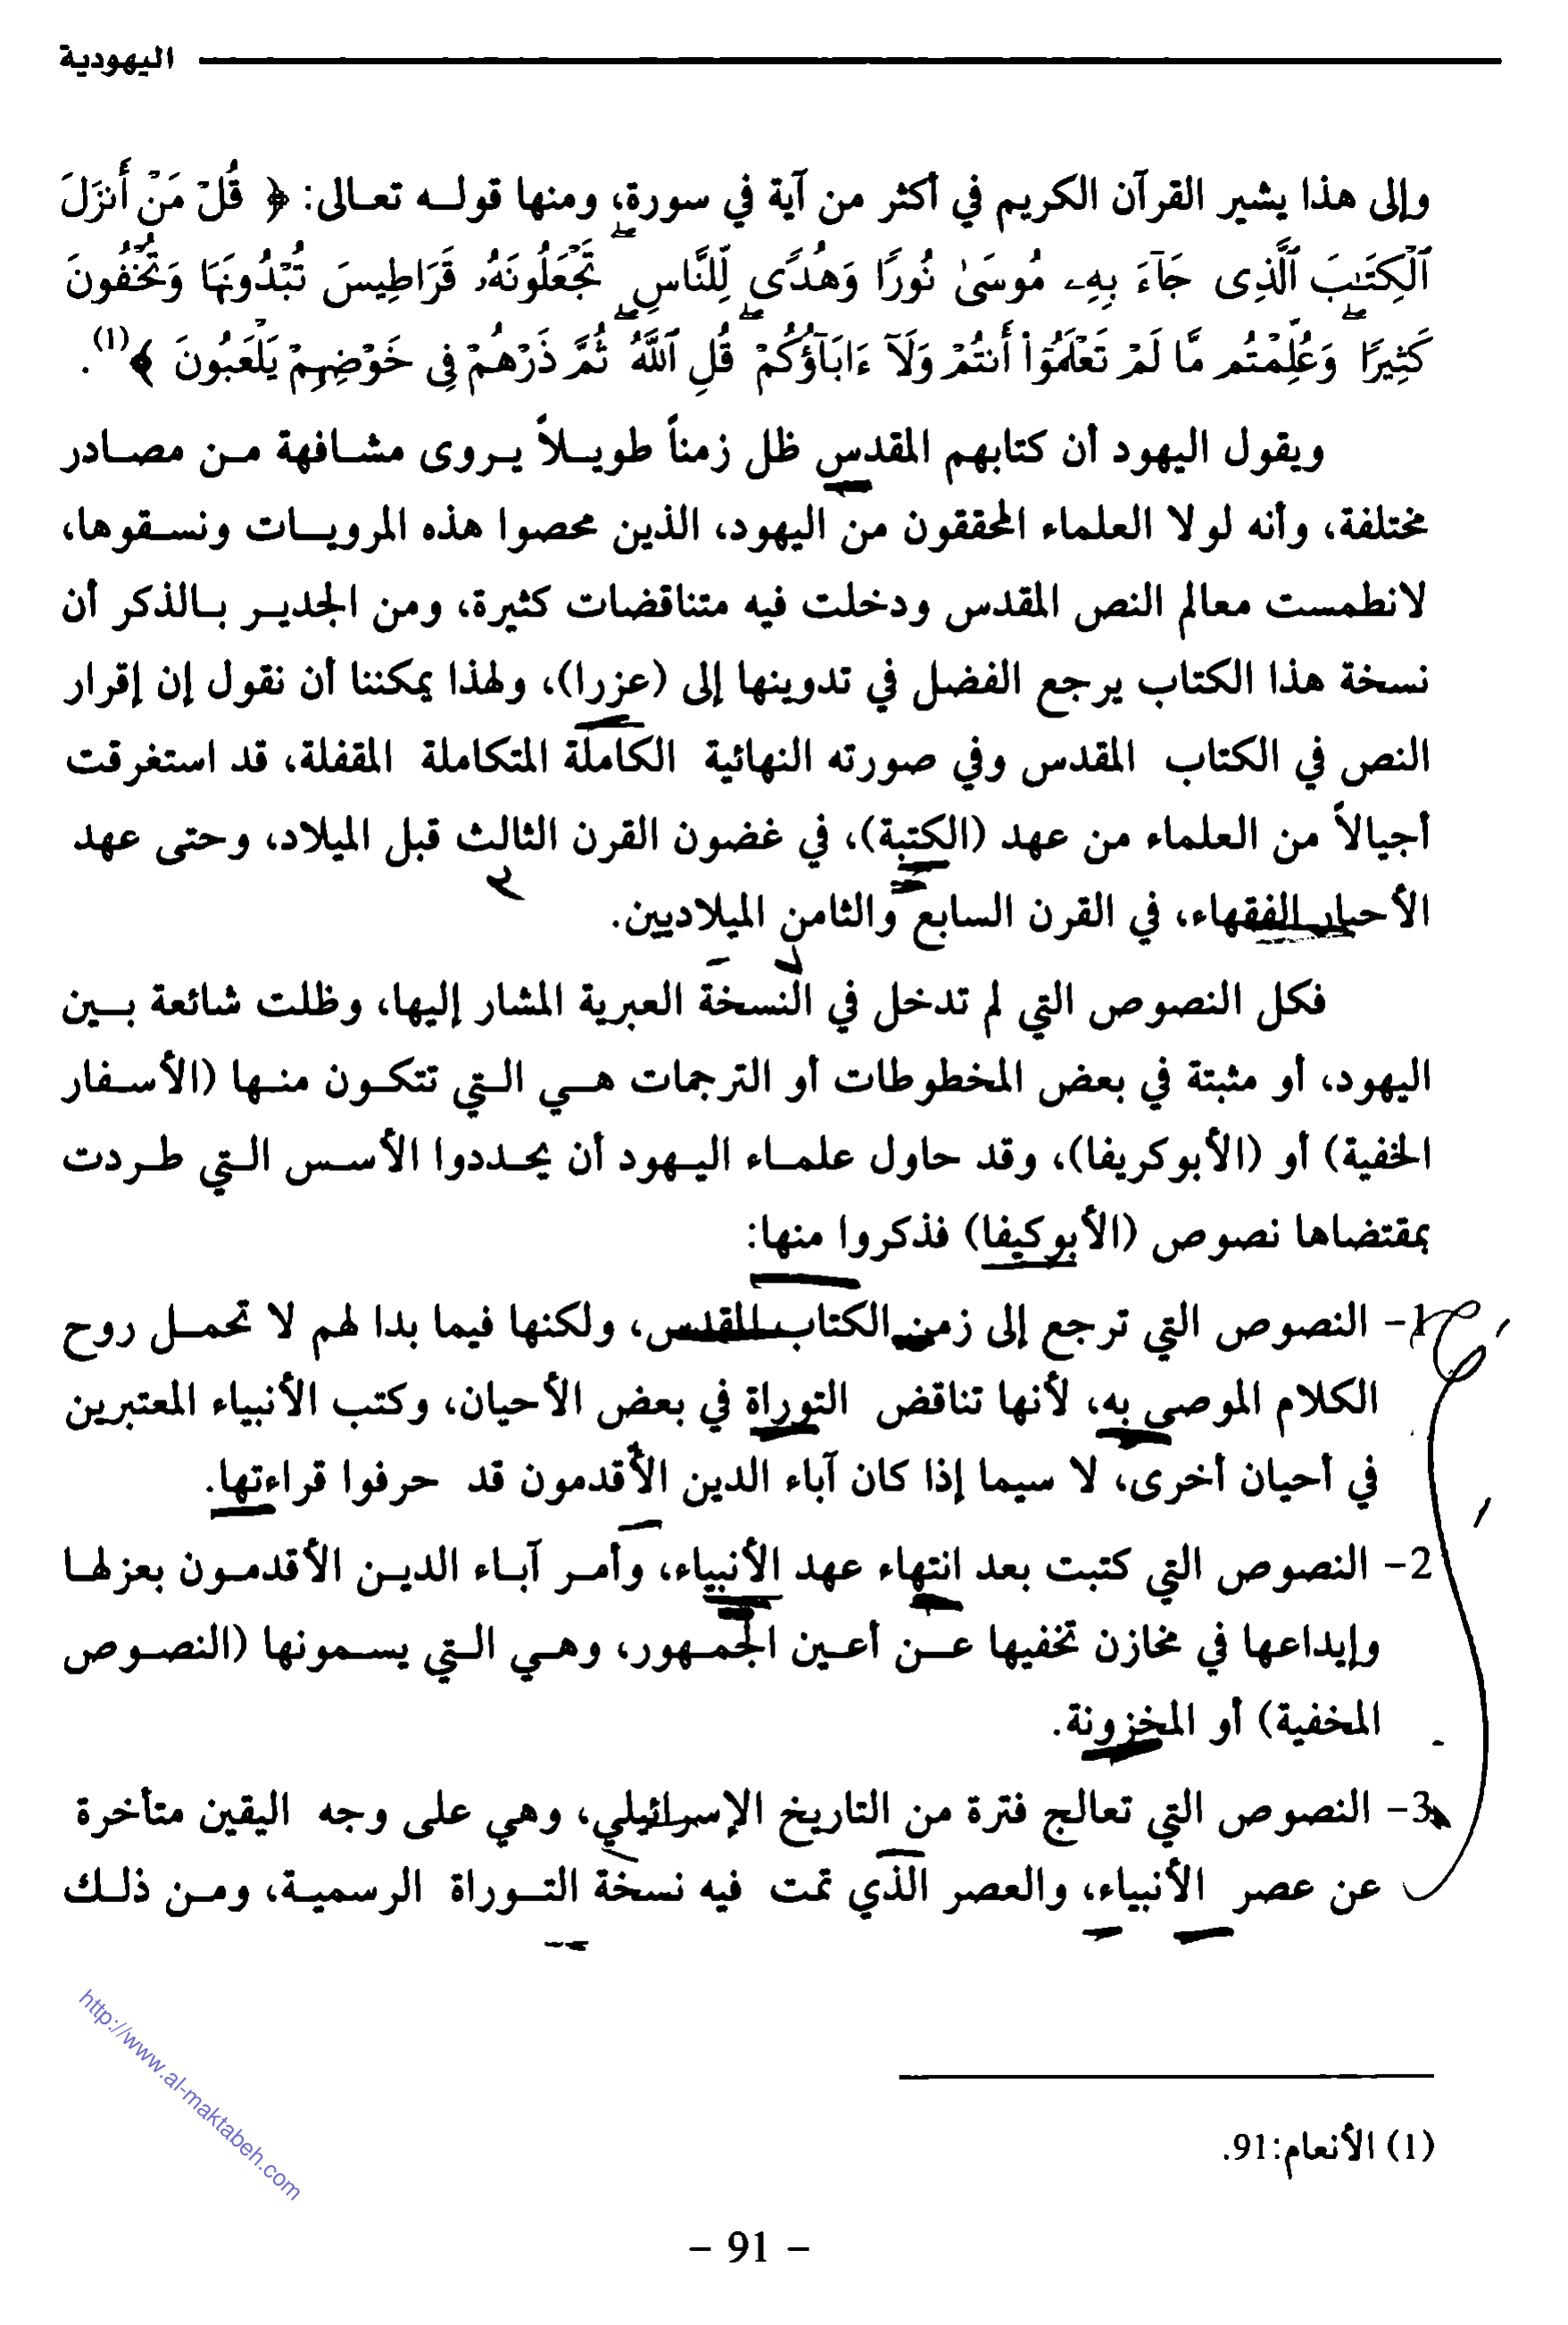 اليهودية
وإلى هذا يشير القرآن الكريم في أكثر من آية في سورة، ومنها قوله تعالى: ﴿ قُلْ مَنْ أَنزَلَ
ٱلْكِتَٰبَ ٱلَّذِى جَآءَ بِهِۦ مُوسَىٰ نُورًا وَهُدًى لِّلنَّاسِ ۖ تَجْعَلُونَهُۥ قَرَاطِيسَ تُبْدُونَهَا وَتُخْفُونَ
كَثِيرًا ۖ وَعُلِّمْتُم مَّا لَمْ تَعْلَمُوٓا۟ أَنتُمْ وَلَآ ءَابَآؤُكُمْ ۖ قُلِ ٱللَّهُ ۖ ثُمَّ ذَرْهُمْ فِى خَوْضِهِمْ يَلْعَبُونَ ﴾(1).
ويقول اليهود أن كتابهم المقدس ظل زمناً طويلاً يروى مشافهة من مصادر
مختلفة، وأنه لولا العلماء المحققون من اليهود، الذين محصوا هذه المرويات ونسقوها،
لانطمست معالم النص المقدس ودخلت فيه متناقضات كثيرة، ومن الجدير بالذكر أن
نسخة هذا الكتاب يرجع الفضل في تدوينها إلى (عزرا)، ولهذا يمكننا أن نقول إن إقرار
النص في الكتاب المقدس وفي صورته النهائية الكاملة المتكاملة المقفلة، قد استغرقت
أجيالاً من العلماء من عهد (الكتبة)، في غضون القرن الثالث قبل الميلاد، وحتى عهد
الأحبار الفقهاء، في القرن السابع والثامن الميلاديين.
فكل النصوص التي لم تدخل في النسخة العبرية المشار إليها، وظلت شائعة بين
اليهود، أو مثبتة في بعض المخطوطات أو الترجمات هي التي تتكون منها (الأسفار
الخفية) أو (الأبوكريفا)، وقد حاول علماء اليهود أن يحددوا الأسس التي طردت
بمقتضاها نصوص (الأبوكيفا) فذكروا منها:
1- النصوص التي ترجع إلى زمن الكتاب المقدس، ولكنها فيما بدا لهم لا تحمل روح
الكلام الموصى به، لأنها تناقض التوراة في بعض الأحيان، وكتب الأنبياء المعتبرين
في أحيان أخرى، لا سيما إذا كان آباء الدين الأقدمون قد حرفوا قراءتها.
2- النصوص التي كتبت بعد انتهاء عهد الأنبياء، وأمر آباء الدين الأقدمون بعزلها
وإيداعها في مخازن تخفيها عن أعين الجمهور، وهي التي يسمونها (النصوص
المخفية) أو المخزونة.
3- النصوص التي تعالج فترة من التاريخ الإسرائيلي، وهي على وجه اليقين متأخرة
عن عصر الأنبياء، والعصر الذي تمت فيه نسخة التوراة الرسمية، ومن ذلك
http://www.al-maktabeh.com
(1) الأنعام:91.
- 91 -